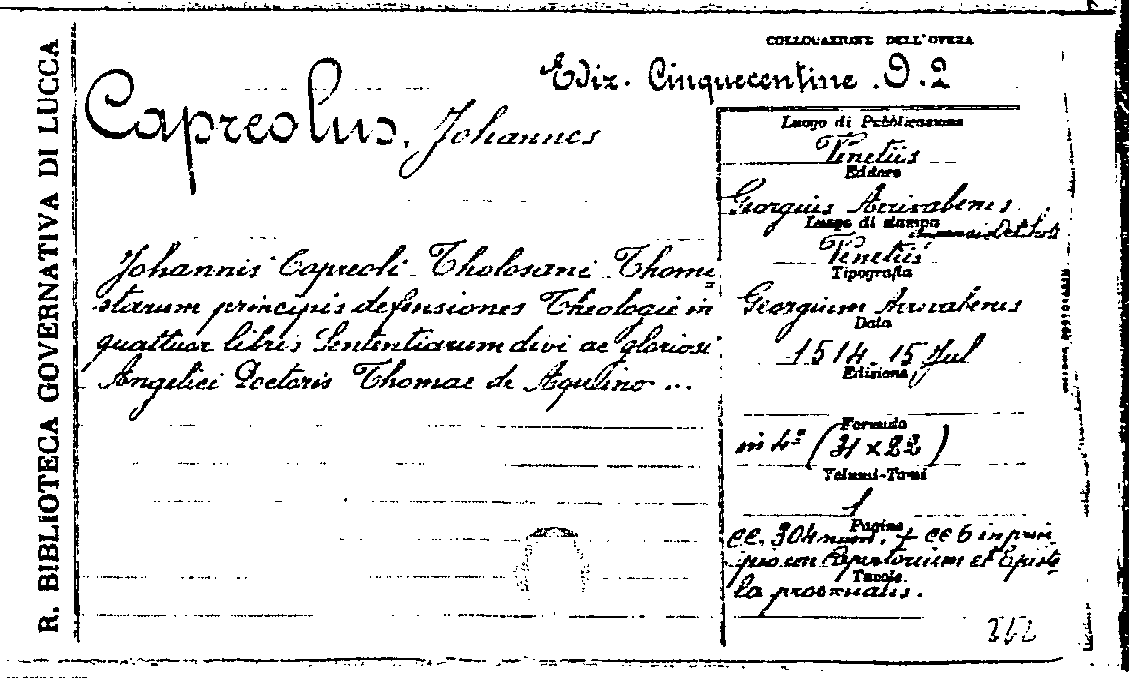 R. BIBLIOTECA GOVERNATIVA DI LUCCA
COLLOCAZIONE DELL'OPERA
Ediz. Cinquecentine . D. 2
Capreolus, Johannes
Johannis Capreoli Tholosani Thomi=
starum principis defensiones Theologie in
quattuor libris Sententiarum divi ac gloriosi
Angelici Doctoris Thomae de Aquino ...
Luogo di Pubblicazione
Venetiis
Editore
Georgius Arrivabenus
Luogo di stampa
Venetiis
Tipografia
Georgium Arrivabenus
Data
1514. 15 Jul
Edizione
Formato
in 4º (31 x 22)
Volumi-Tomi
1
Pagine
cc. 304 num. + cc 6 in prin
pio con Repertorium et Episto
Tavole
la prooemialis.
262